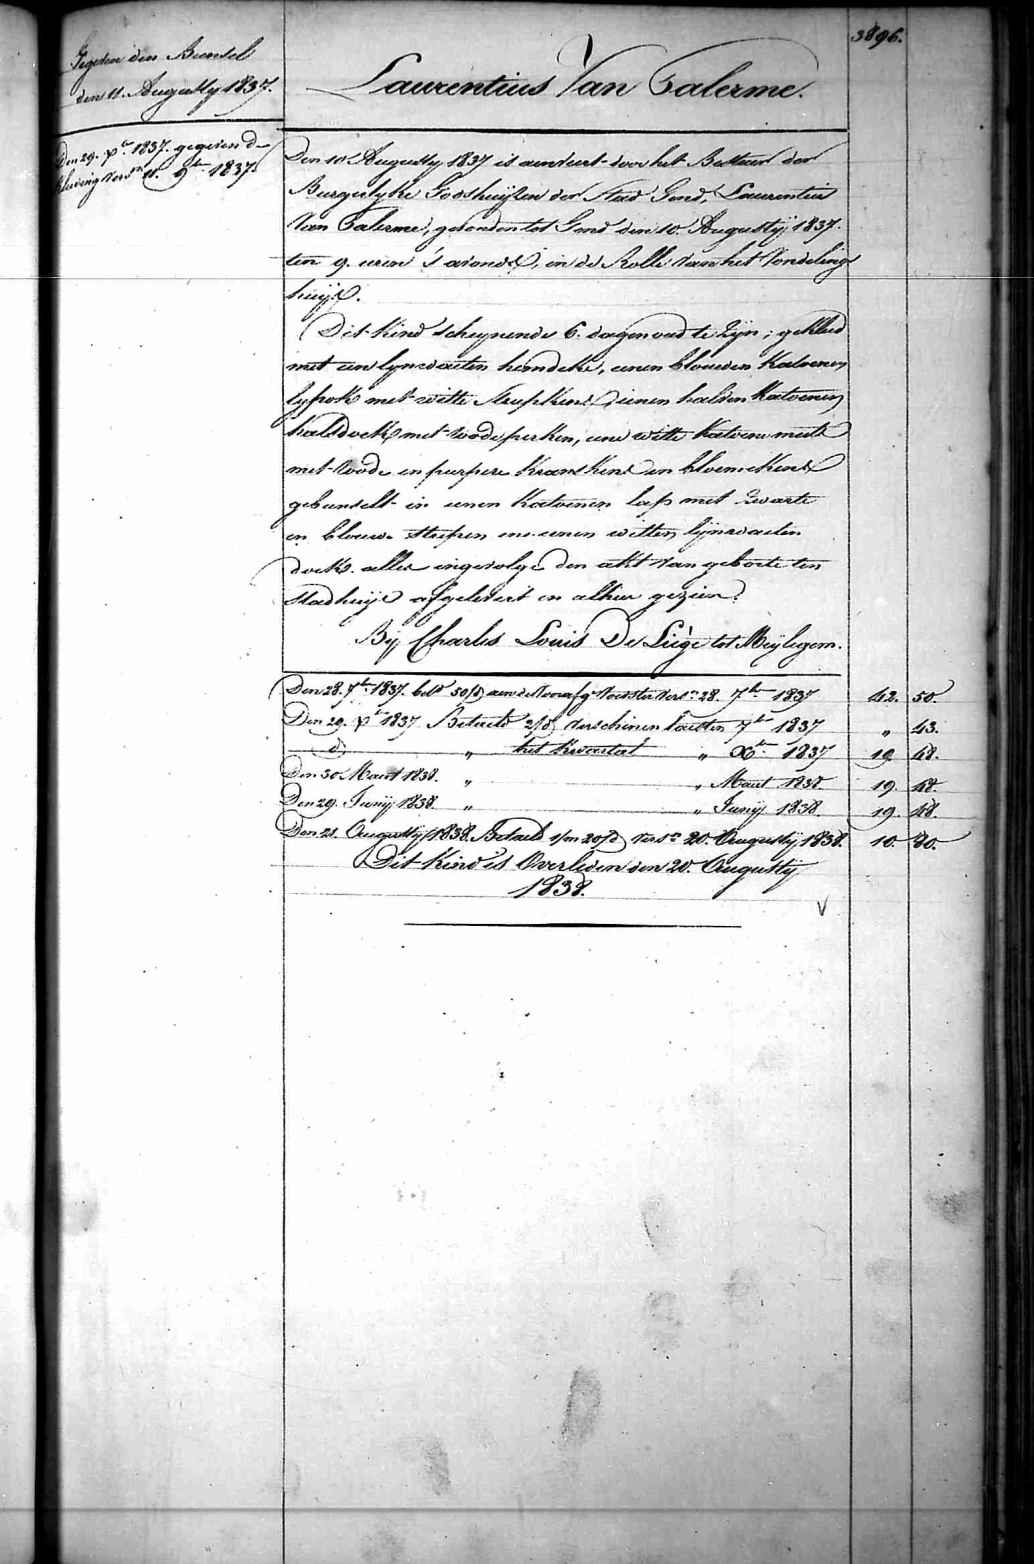 3896.
Gegeven den Bunsel
den 11. Augusty 1837.
Den 29. Xbre 1837. gegeven d
kleeding vers. 11. 9bre 1837.
Laurentius Van Palerme.
Den 10. Augusty 1837 is aenveert door het Bestuur der
Burgerlyke Godshuijsen der Stad Gend, Laurentius
Van Palerme, gevonden tot Gend den 10. Augustij 1837.
ten 9. uren 's avonds, in de Rolle van het Vondeling
huijs.
Dit Kind schynende 6. dagen oud te zijn; gekleed
met een lynwaeten hemdeke, eenen blouwen Katoenen
lyfrok met witte streepkens, eenen halven Katoenen
halsdoek met roode perken, eene witte Katoene muts
met roode en purpere Kranskens en bloemekens
gebunselt in eenen Katoenen lap met zwarte
en blouwe streepen en eenen witten lijnwaeten
doek. alles ingevolge den akt van geboorte ten
Stadhuijs afgelevert en alhier gezien.
Bij Charles Louis De Liège tot Meijlegem.
Den 28. 7bre 1837. bet. 50 aen de Voorster vers. 28. 7bre 1837 42. 50.
Den 29. Xbre 1837 Betaelt 2/d verschenen laesten 7bre 1837 „ 43.
d° „ het Kwartael „ Xbre 1837 19 48.
Den 30 Maert 1838. „ „ Maert 1838. 19. 48
Den 29. Junij 1838. „ „ Junij 1838. 19. 48.
Den 21. Augustij 1838. Betaelt 1/m 20/d vers. 20. Augustij 1838. 10. 80.
Dit Kind is Overleden den 20. Augustij
1838.